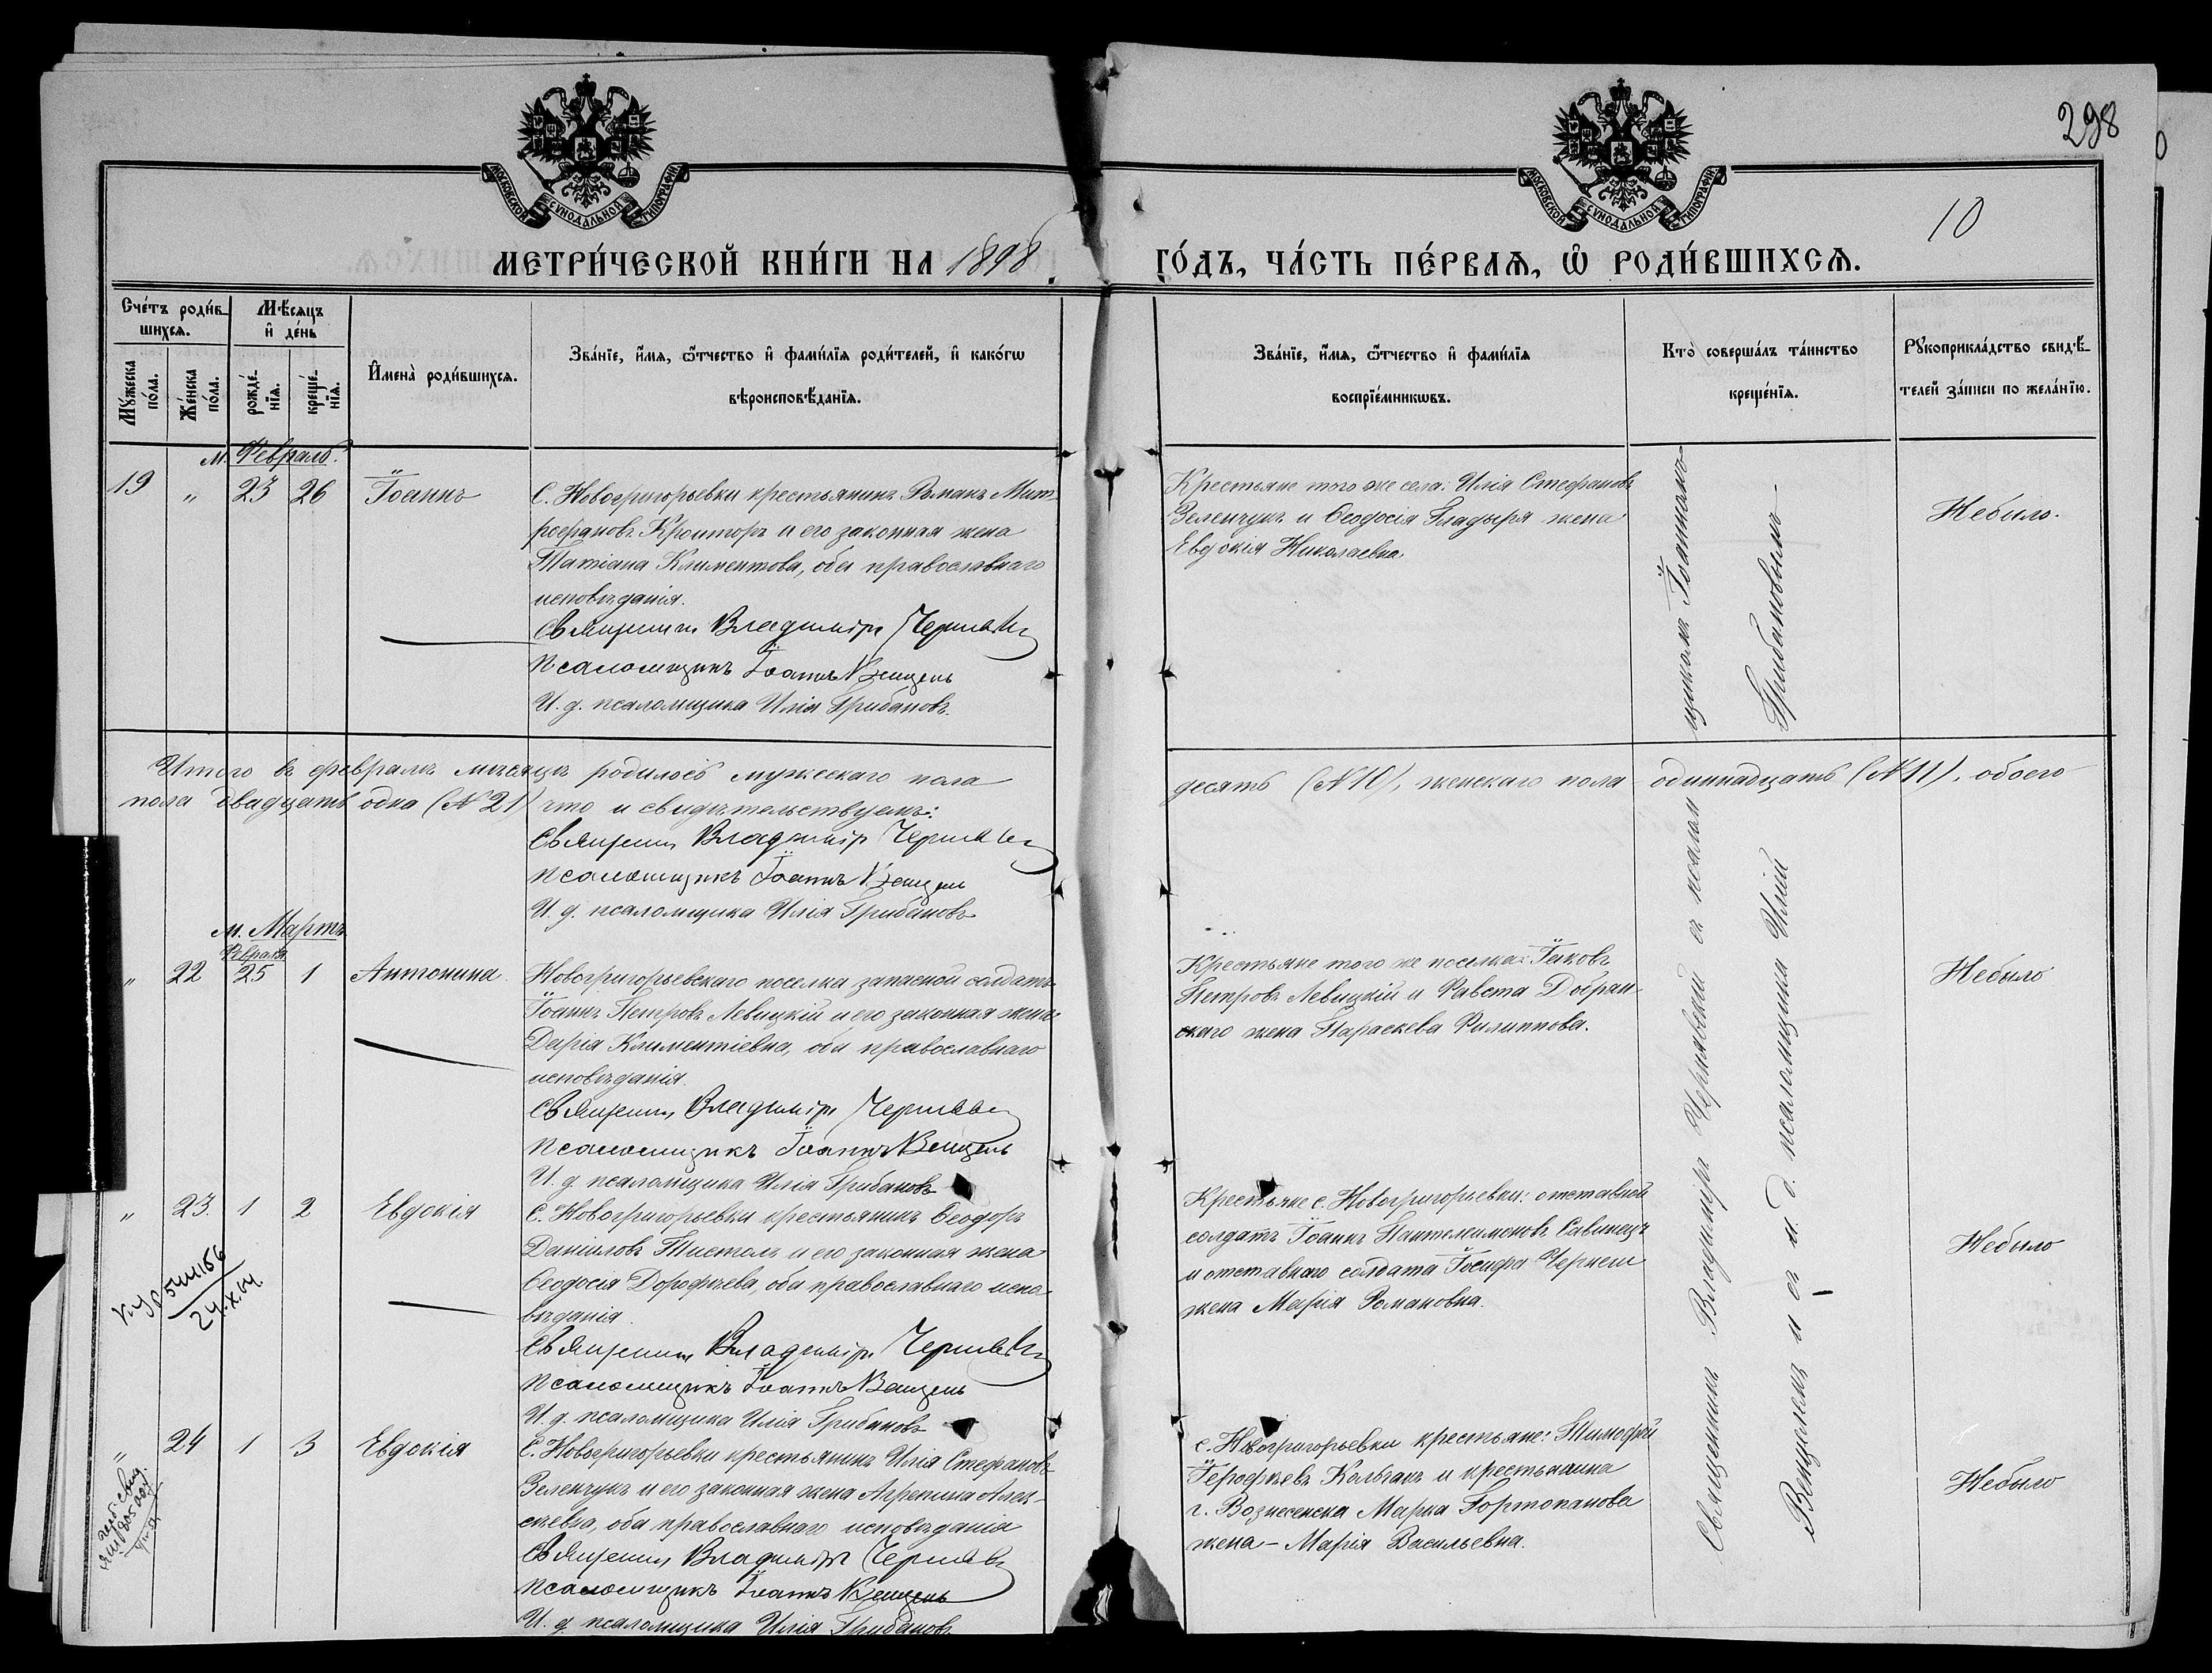 298
10
МОСКОВСКОЙ СѴНОДАЛЬНОЙ ТИПОГРАФІИ
МОСКОВСКОЙ СѴНОДАЛЬНОЙ ТИПОГРАФІИ
МЕТРИ́ЧЕСКОЙ КНИ́ГИ НА 1898
ГО́ДЪ, ЧА́СТЬ ПЕ́РВАѦ, Ѡ҆ РОДИ́ВШИХСѦ.
Сче́тъ роди́в-
шихсѧ.
Мꙋ́жеска по́ла.
Же́нска по́ла.
Мѣ́сяцъ
и҆ де́нь
рожде́-
нїѧ.
креще́-
нїѧ.
И҆мена̀ роди́вшихсѧ.
Зва́нїе, и҆́мѧ, ѻ҆́тчество и҆ фами́лїѧ роди́телей, и҆ како́гѡ
вѣроисповѣ́данїѧ.
Зва́нїе, и҆́мѧ, ѻ҆́тчество и҆ фами́лїѧ
воспрїе́мникѡвъ.
Кто̀ соверша́лъ та́инство
креще́нїѧ.
Рꙋкоприкла́дство свидѣ́-
телей за́писи по жела́нїю.
м. Февраль.
19 " 23 26 Іоаннъ
С. Новогригорьевки крестьянинъ Романъ Мит-
рофановъ Кроиторъ и его законная жена
Татіана Климентова, оба православнаго
исповѣданія.
Священникъ Владиміръ Чернявскій
Псаломщикъ Іоаннъ Венцель
И. д. псаломщика Илія Грибановъ.
Крестьяне того же села: Илія Стефановъ
Зеленчукъ и Ѳеодосія Гладыря жена
Евдокія Николаевна.
Небыло.
Итого въ февралѣ мѣсяцѣ родилось мужескаго пола
десять (№10), женскаго пола одиннадцать (№11), обоего
пола двадцать одна (№21) что и свидѣтельствуемъ:
Священникъ Владиміръ Чернявскій
Псаломщикъ Іоаннъ Венцель
И. д. псаломщика Илія Грибановъ
м. Мартъ
Февраля
" 22 25 1 Антонина
Новогригорьевскаго поселка запасной солдатъ
Іоаннъ Петровъ Левицкій и его законная жена
Дарія Климентіевна, оба православнаго
исповѣданія.
Священникъ Владиміръ Чернявскій
Псаломщикъ Іоаннъ Венцель
И. д. псаломщика Илія Грибановъ
Крестьяне того же поселка: Іаковъ
Петровъ Левицкій и Савета Добрян-
скаго жена Параскева Филиппова.
Небыло
" 23. 1 2 Евдокія
С. Новогригорьевки крестьянинъ Ѳеодоръ
Даніиловъ Тистоль и его законная жена
Ѳеодосія Дорофѣева, оба православнаго испо-
вѣданія.
Священникъ Владиміръ Чернявскій
Псаломщикъ Іоаннъ Венцель
И. д. псаломщика Илія Грибановъ
Крестьяне с. Новогригорьевки: отставной
солдатъ Іоаннъ Пантелеимоновъ Савинецъ
и отставного солдата Іосифа Чернеги
жена Марія Романовна.
Небыло
" 24 1 3 Евдокія
С. Новогригорьевки крестьянинъ Илія Стефановъ
Зеленчукъ и его законная жена Агрепина Алек-
сѣевна, оба православнаго исповѣданія
Священникъ Владиміръ Чернявскій
Псаломщикъ Іоаннъ Венцель
И. д. псаломщика Илія Грибановъ
с. Новогригорьевки крестьяне: Тимофей
Іерофеевъ Колбанъ и крестьянина
г. Вознесенска Марка Гортопанова
жена - Марія Васильевна.
Небыло
Священникъ Владиміръ Чернявскій съ псалом
щикомъ Іоанномъ
Венцелемъ и съ и. д. псаломщика Иліей
Грибановымъ